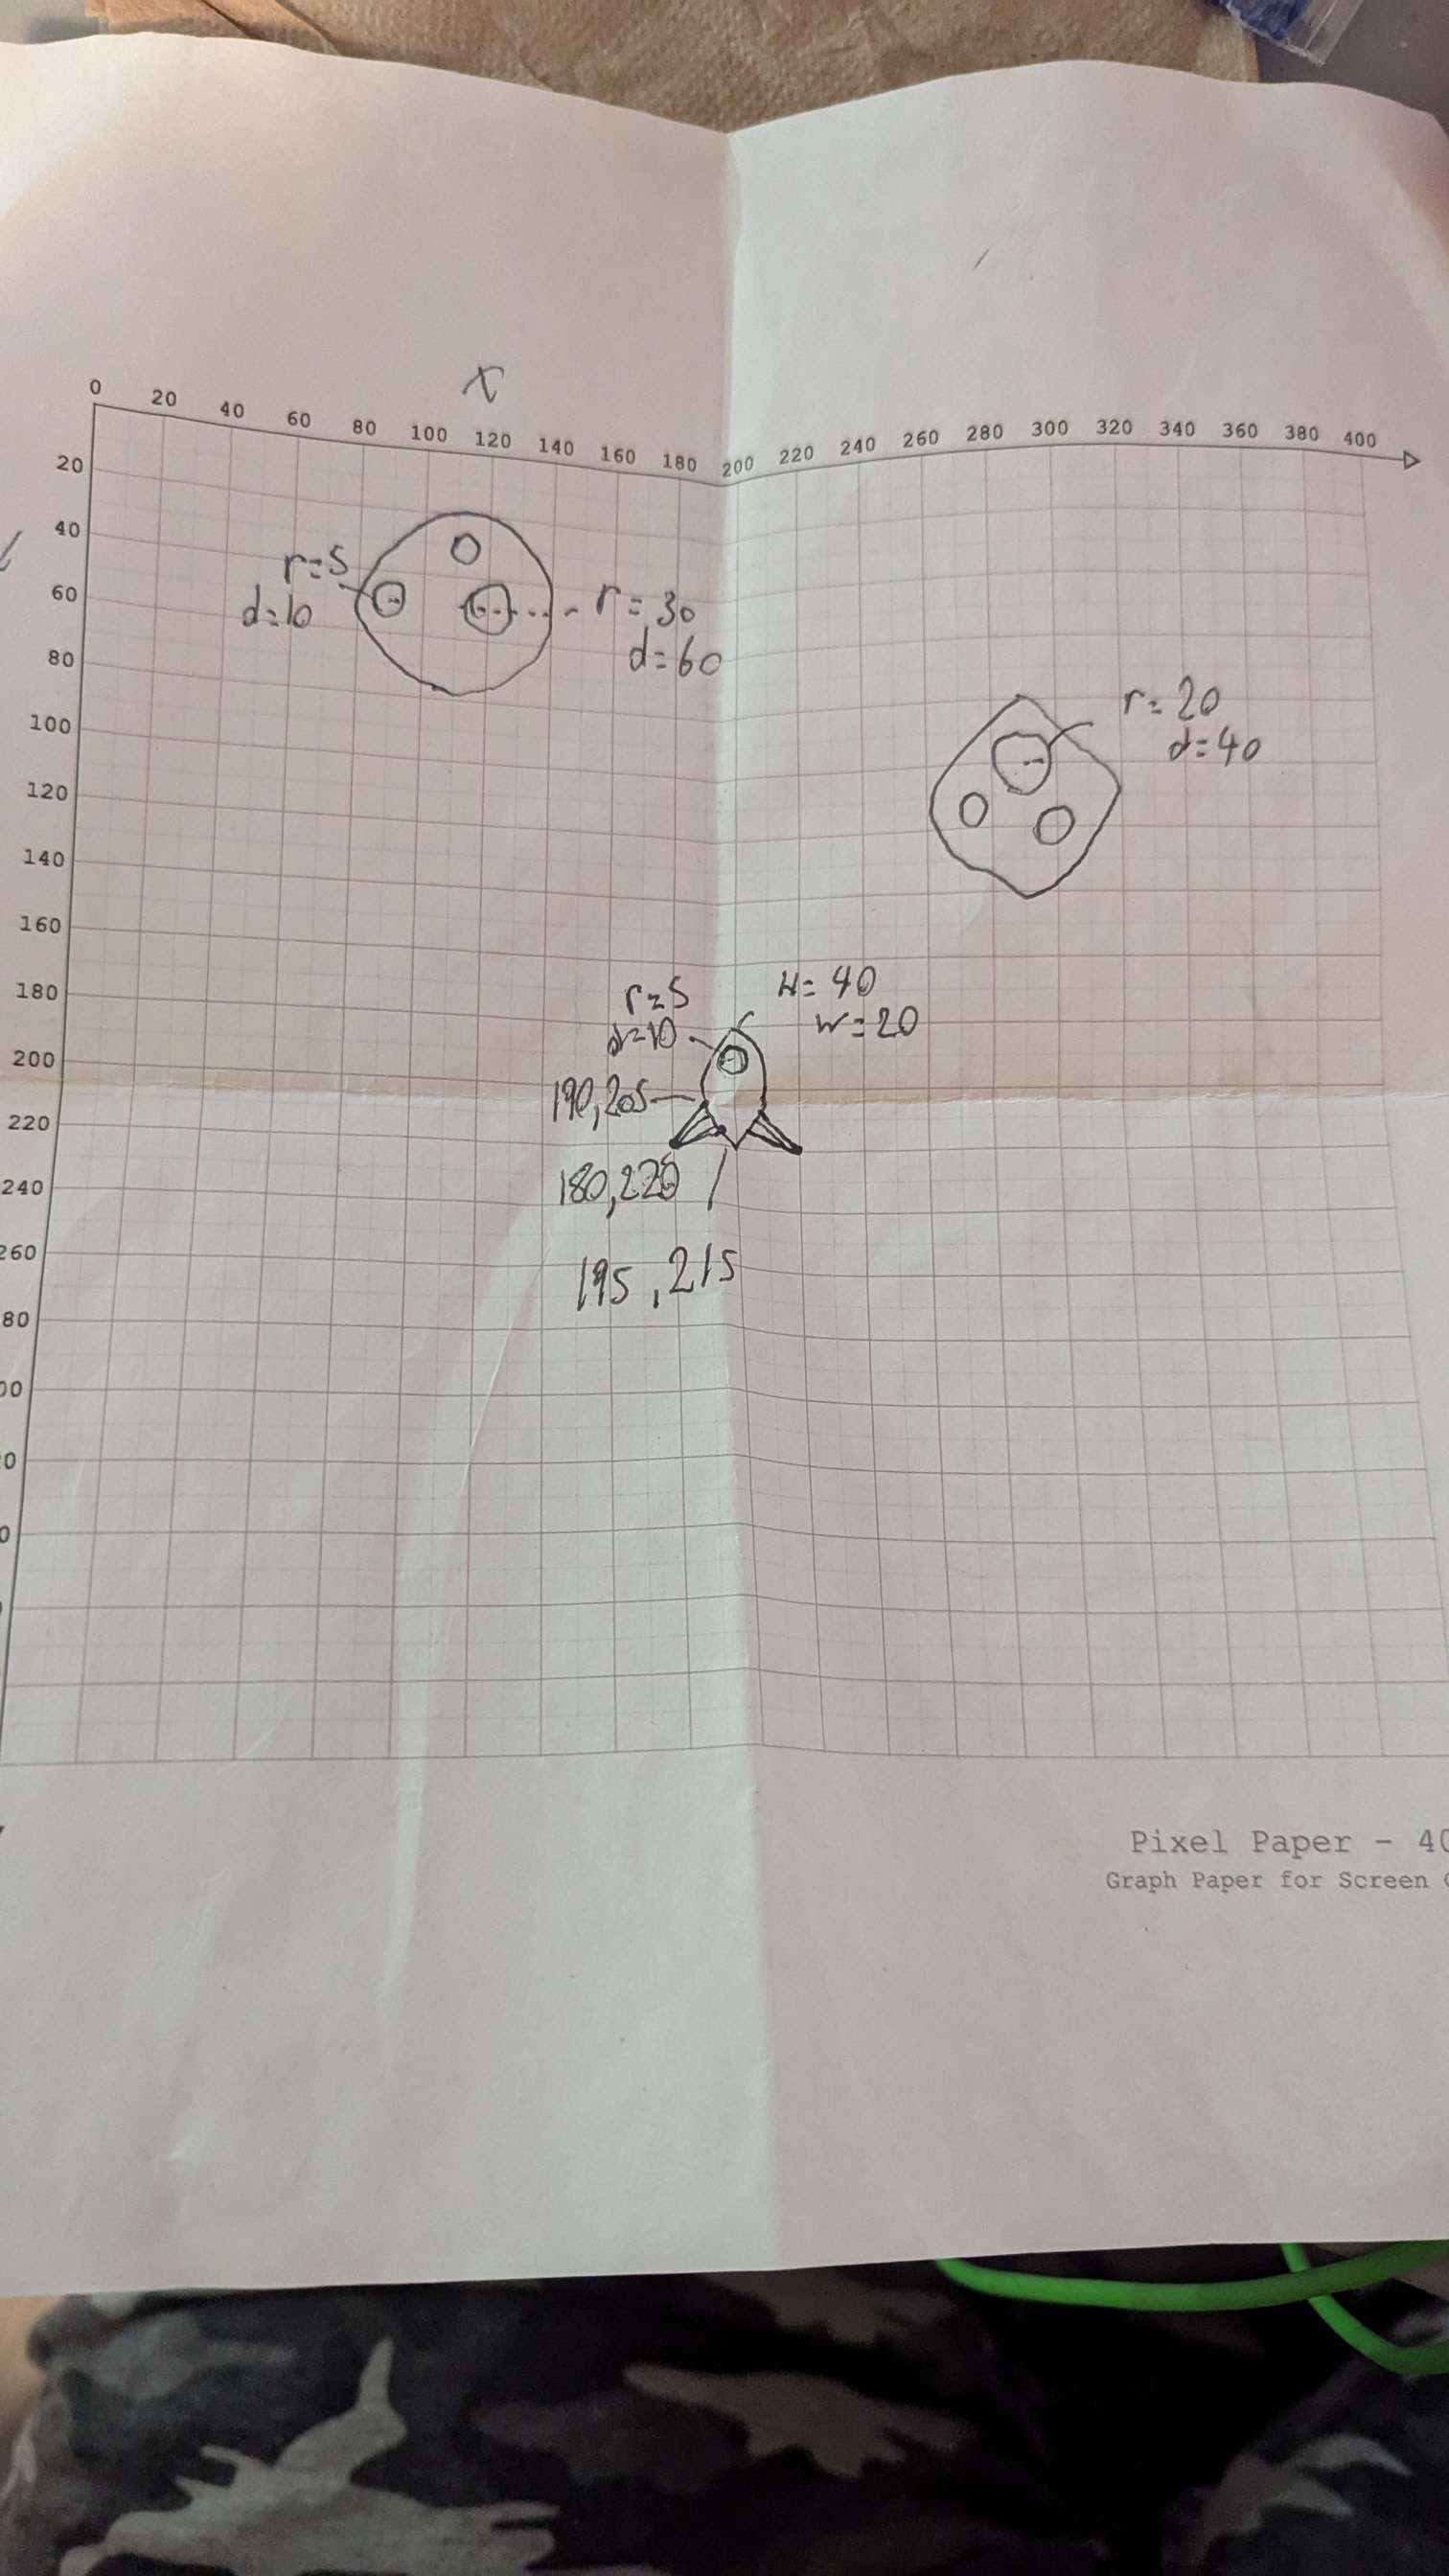 X
0 20 40 60 80 100 120 140 160 180 200 220 240 260 280 300 320 340 360 380 400
20
40
60
80
100
120
140
160
180
200
220
240
260
80
00
0
0
r=5
d=10
r=30
d=60
r=20
d=40
r=5
d=10
H=40
W=20
190,205
180,220
195,215
Pixel Paper - 40
Graph Paper for Screen